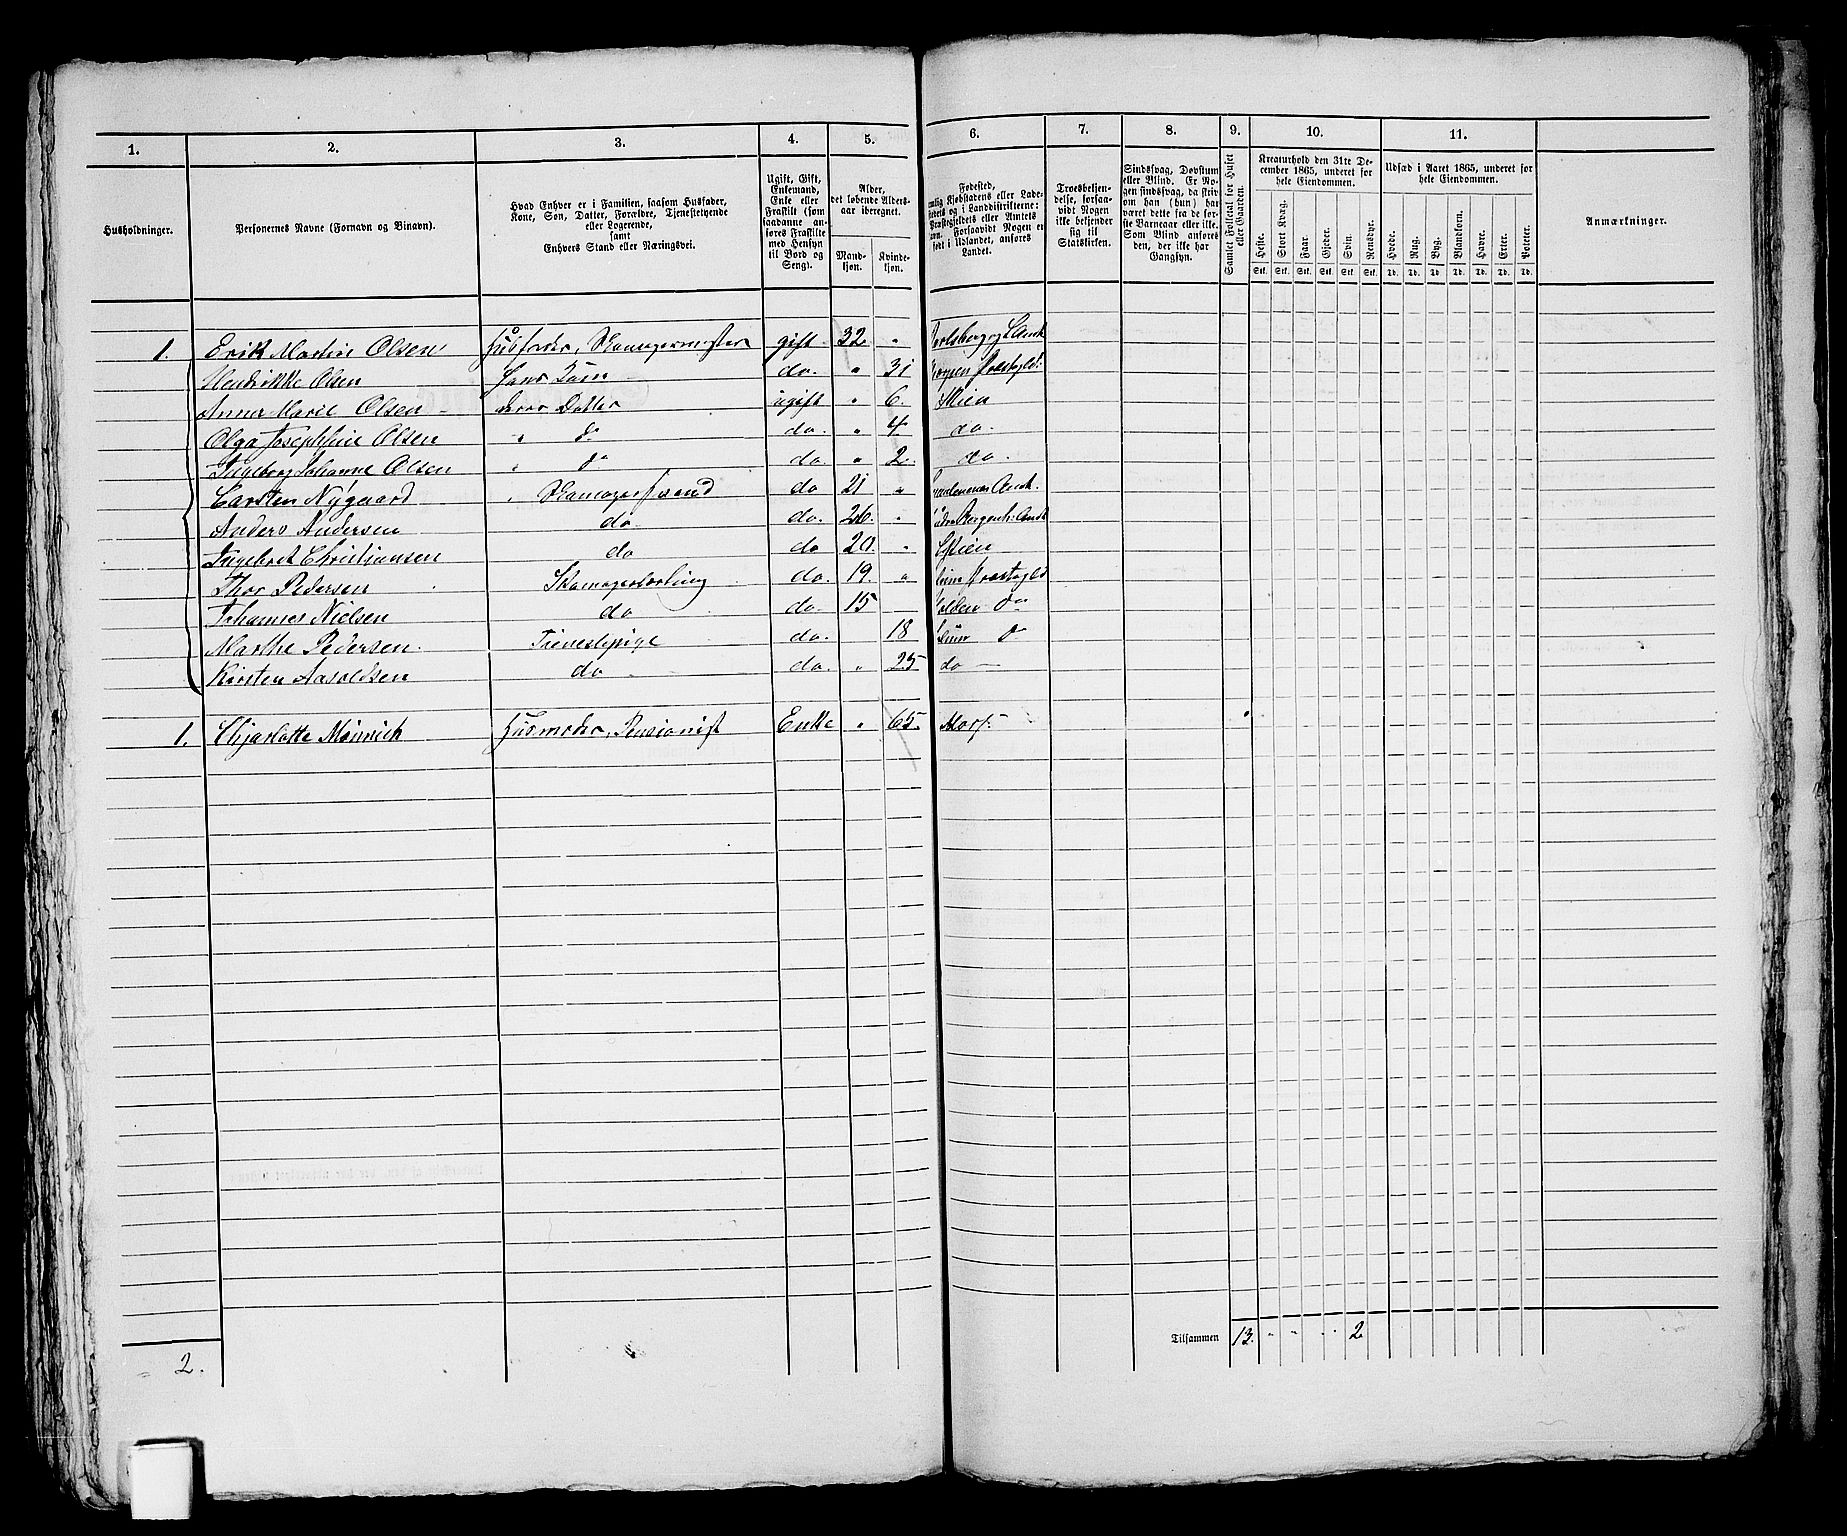 1. 2. 3. 4. 5. 6. 7. 8. 9. 10. 11.
Husholdninger.
Personernes Navne (Fornavn og Binavn).
Hvad Enhver er i Familien, saasom Husfader,
Kone, Søn, Datter, Forældre, Tjenestetyende
eller Logerende,
samt
Enhvers Stand eller Næringsvei.
Ugift, Gift,
Enkemand,
Enke eller
Fraskilt (som
saadanne an-
føres Fraskilte
med Hensyn
til Bord og
Seng).
Alder,
det løbende Alders-
aar iberegnet.
Mand-
kjøn.
Kvinde-
kjøn.
Fødested,
Kjøbstadens eller Lade-
og i Landdistrikterne:
Præstegjeldets eller Amtets
Forsaavidt Nogen er
født i Udlandet, anføres
Landet.
Troesbekjen-
delse, forsaa-
vidt Nogen
ikke bekjender
sig til
Statskirken.
Sindssvag, Døvstum
eller Blind. Er No-
gen sindssvag, da skriv
om han (hun) har
været dette fra de før-
ste Barneaar eller ikke.
Som Blind anføres
den, der ikke har
Gangsyn.
Samlet Folketal for Huset
eller Gaarden.
Kreaturhold den 31te De-
cember 1865, underet for
hele Eiendommen.
Heste. Stort Kvæg. Faar. Gjeder. Svin. Rensdyr.
Stk. Stk. Stk. Stk. Stk. Stk.
Udsæd i Aaret 1865, underet for
hele Eiendommen.
Hvede. Rug. Byg. Blandkorn. Havre. Erter. Poteter.
Td. Td. Td. Td. Td. Td. Td.
Anmærkninger.
1. Erik Martin Olsen Husfader, Skomagermester gift 32 " Amt
Hendrikke Olsen Hans Kone do. " 31 Præstegjld:
Anne Marie Olsen Deres Datter ugift " 6. Skien
Olga Josephine Olsen " do do. " 4 do.
Ingeborg Johanne Olsen " do do. " 2. do.
Carsten Nygaard " Skomagersvend do 21 " Amt.
Anders Andersen do. do. 26. " Amt
Ingebret Christiansen do do 20. " Skien
Thor Pedersen Skomagerlærling do. 19. " Præstegjld
Johannes Nielsen do do. 15 do
Marthe Pedersen Tjenestepige do. 18 do
Kirsten Aasoldsen do do. " 25 do
1. Chjarlotte Münnich Husmoder, Pensionist Enke " 65.
Tilsammen 13. " " " " 2
2.